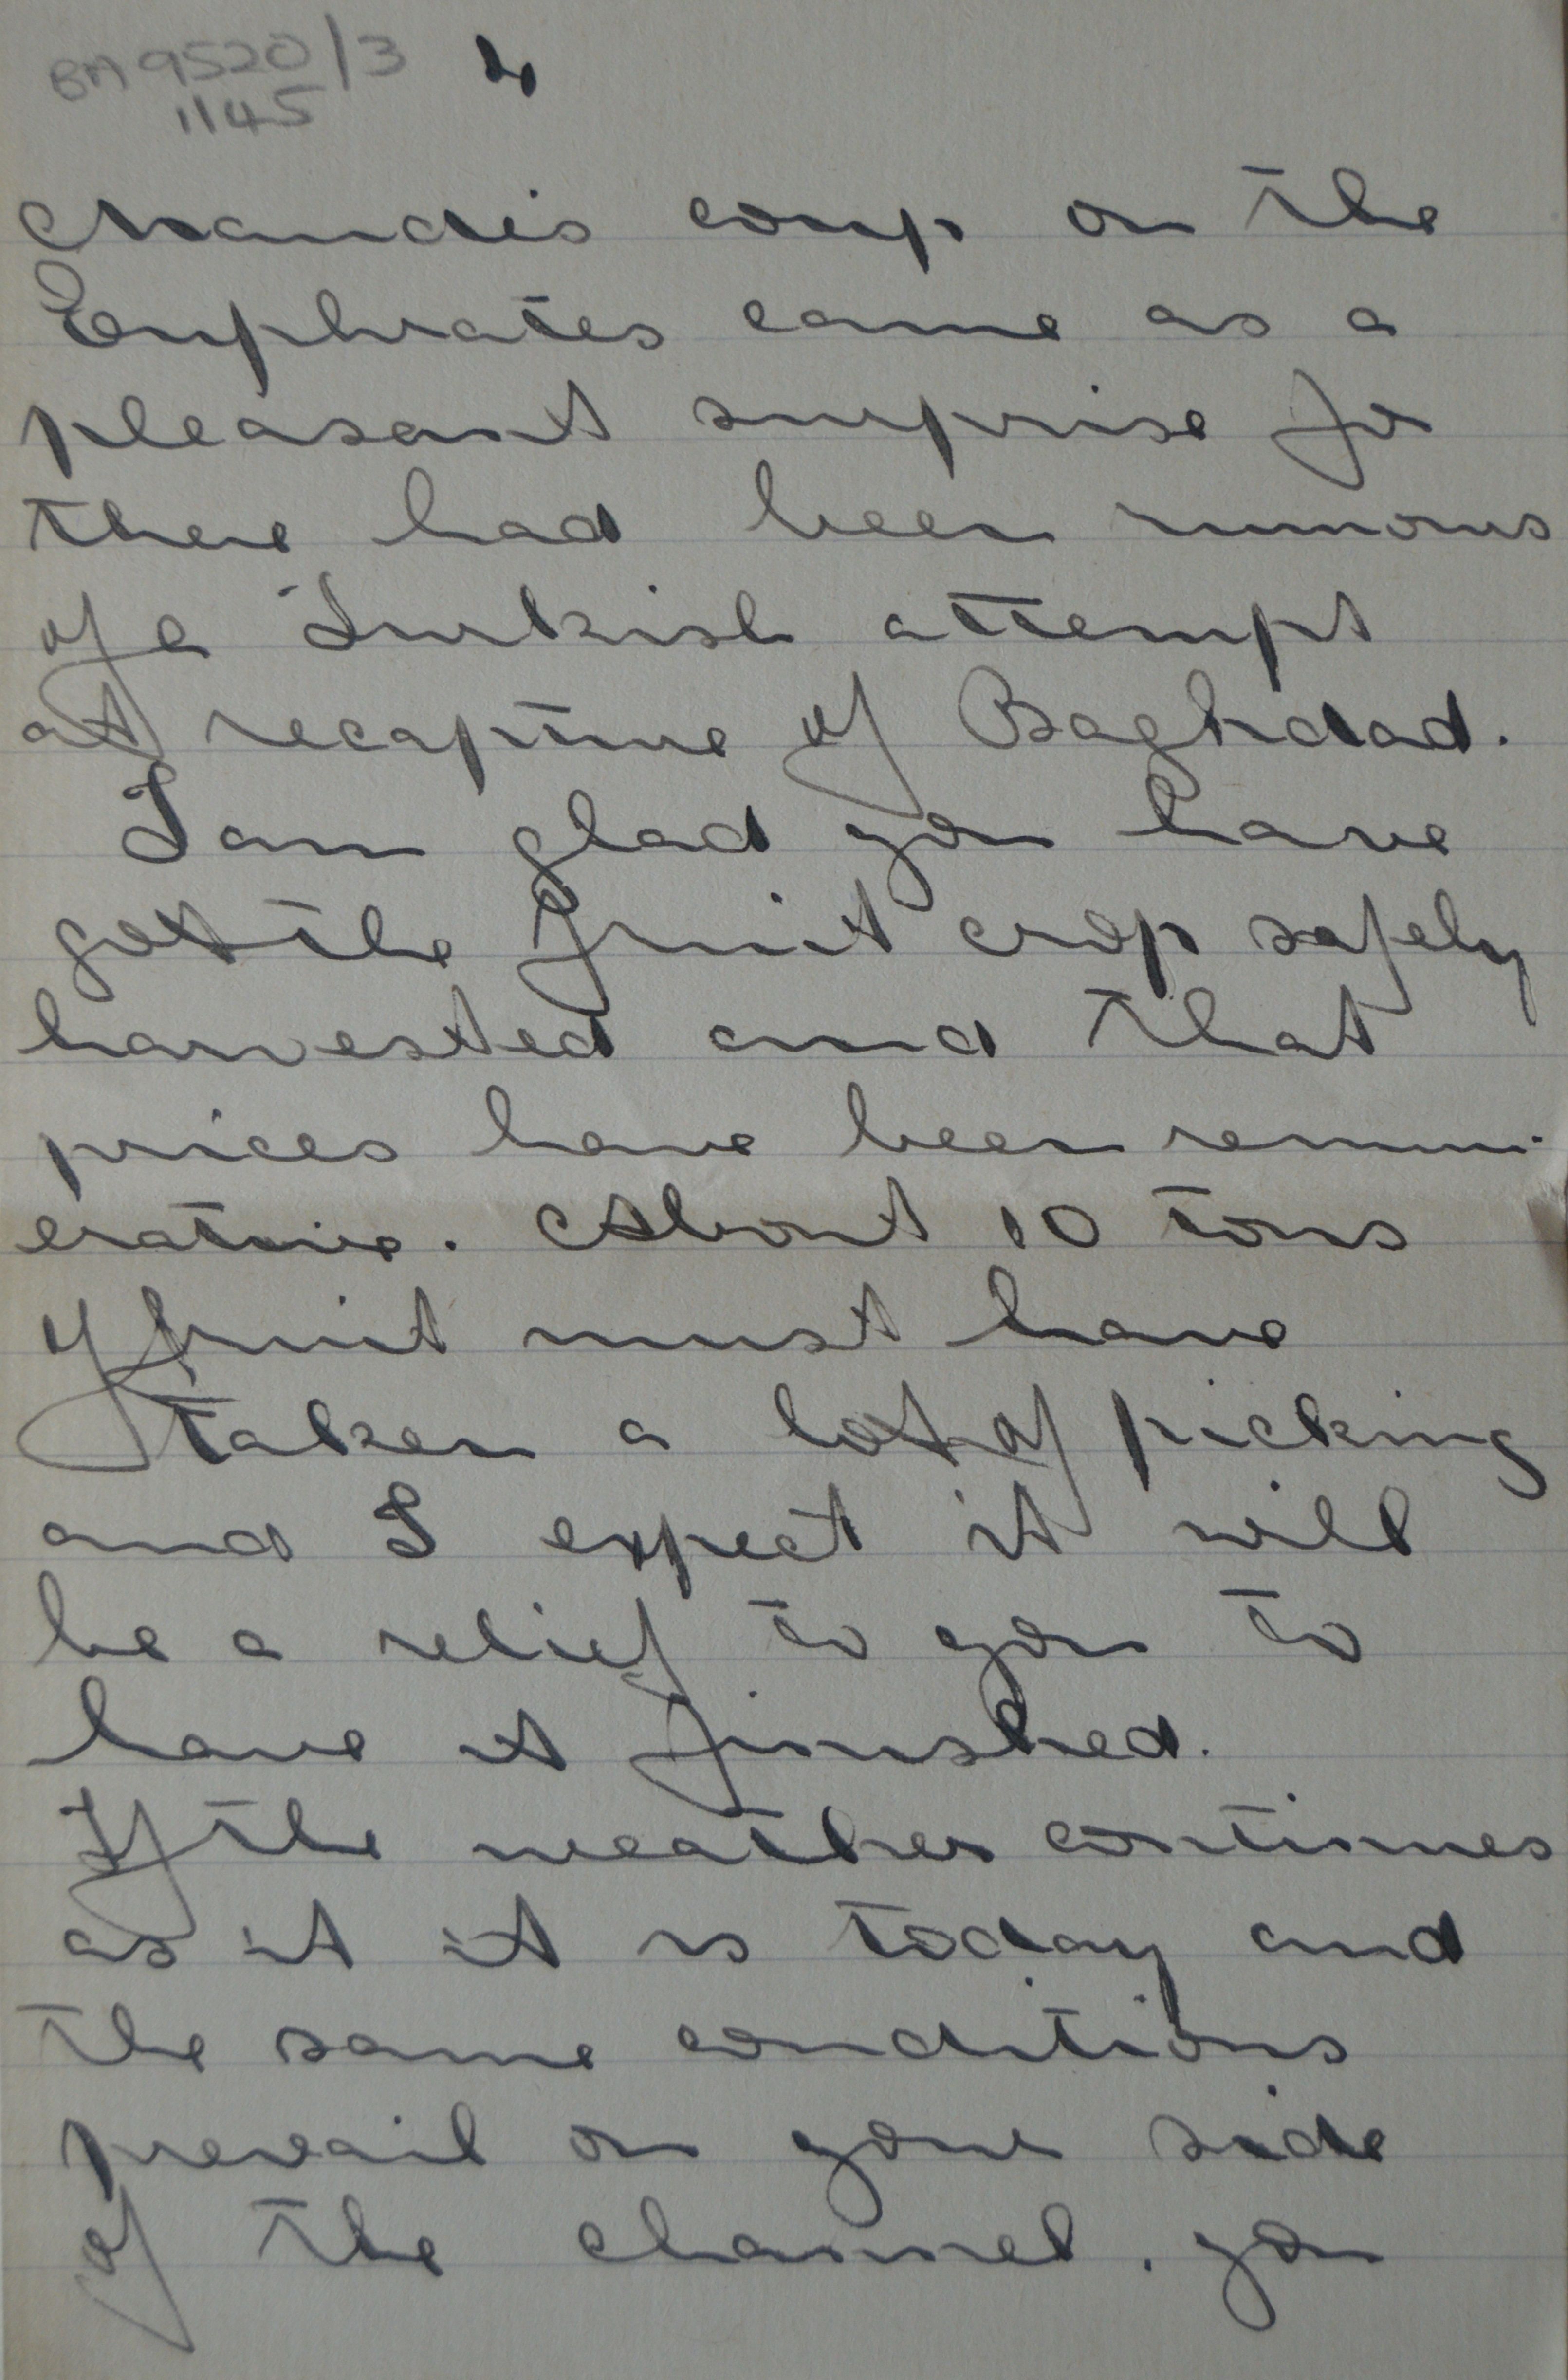 BM 9520/3 4
1145
Maude's coup on the
Euphrates came as a
pleasant surprise for
there had been rumours
of a Turkish attempt
at recapture of Baghdad.
I am glad you have
got the fruit crop safely
harvested and that
prices have been remun-
erative. About 10 tons
of fruit must have
taken a lot of picking
and I expect it will
be a relief to you to
have it finished.
If the weather continues
as it it is today and
the same conditions
prevail on your side
of the channel. you